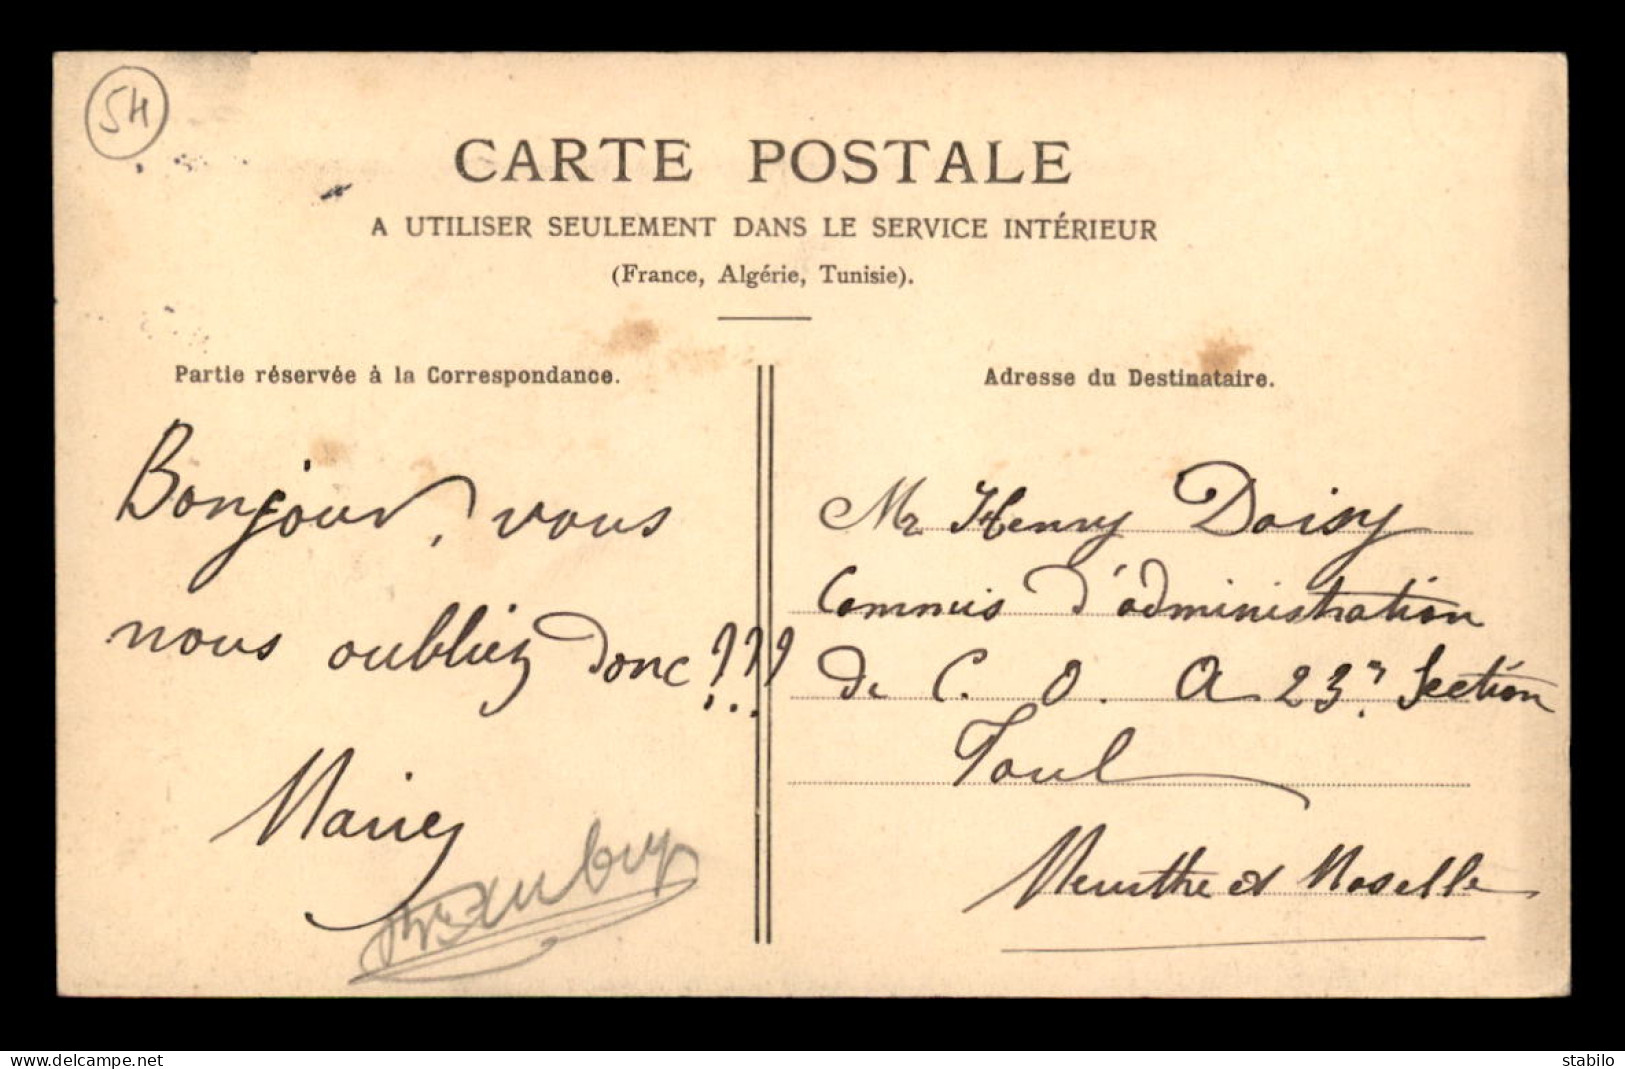 54
CARTE POSTALE
A UTILISER SEULEMENT DANS LE SERVICE INTÉRIEUR
(France, Algérie, Tunisie).
Partie réservée à la Correspondance.
Bonjour, vous
nous oubliez donc ???
Adresse du Destinataire.
Mr Henry Doisy
Commis d'administration
de C. O. A 23e Section
Toul
Meurthe et Moselle
https://www.delcampe.net
stabilo